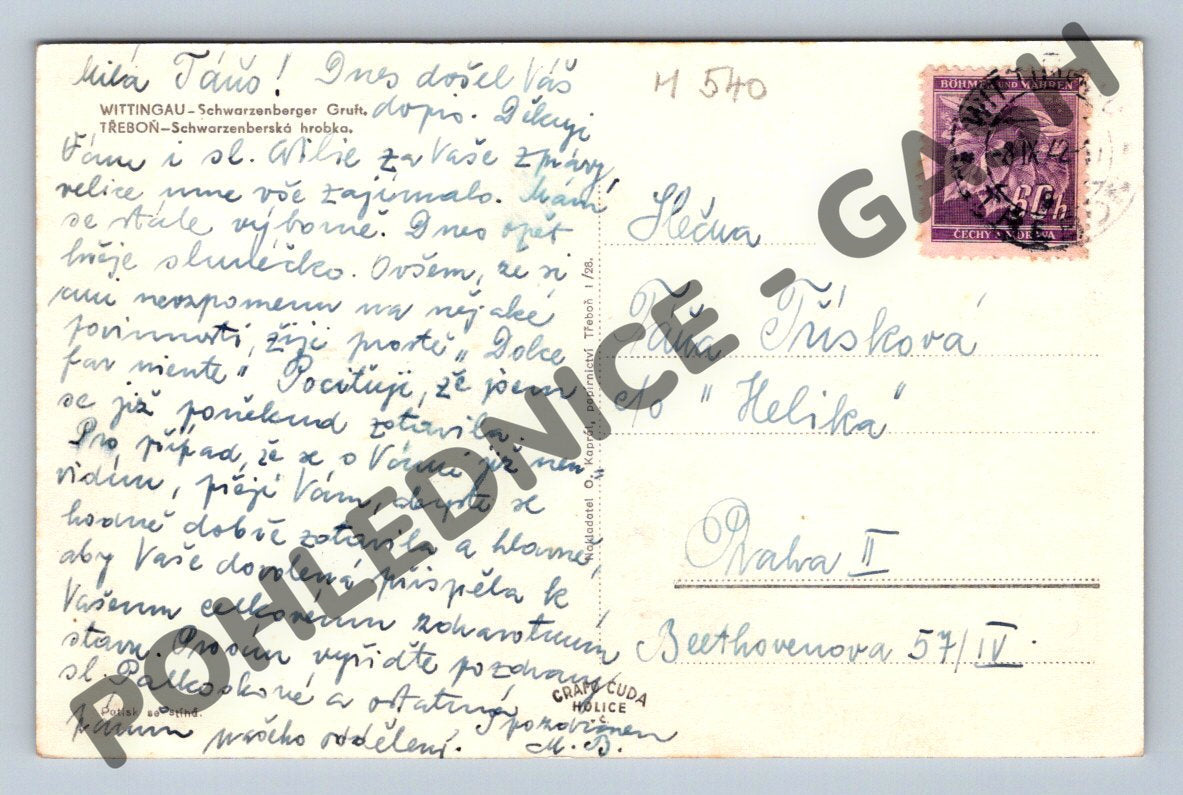 Milá Táňo! Dnes došel Váš
dopis. Děkuji
WITTINGAU–Schwarzenberger Gruft.
TŘEBOŇ–Schwarzenberská hrobka.
Vám i sl. Cilie za Vaše zprávy,
velice mne vše zajímalo. Mám
se stále výborně. Dnes opět
hřeje sluníčko. Ovšem, že si
ani nevzpomenu na nějaké
povinnosti, žiji prostě „Dolce
far niente" Pociťuji, že jsem
se již poněkud zotavila.
Pro případ, že se s Vámi již neu-
vidím, přeji Vám, abyste se
hodně dobře zotavila a hlavně,
aby Vaše dovolená přispěla k
Vašemu celkovému zdravotnímu
stavu. Prosím vyřiďte pozdravy
sl. a ostatním
našeho oddělení.
S pozdravem
M. B.
Patisk se stíhá.
Nakladatel O. Kaprál, papírnictví Třeboň 1/28.
GRAFO ČUDA
HOLICE
M 540
BÖHMEN UND MÄHREN
60h
ČECHY A MORAVA
8 IX 42
Slečna
Táňa Třísková
c/o "Helika"
Praha II
Beethovenova 57/IV.
POHLEDNICE - GASH